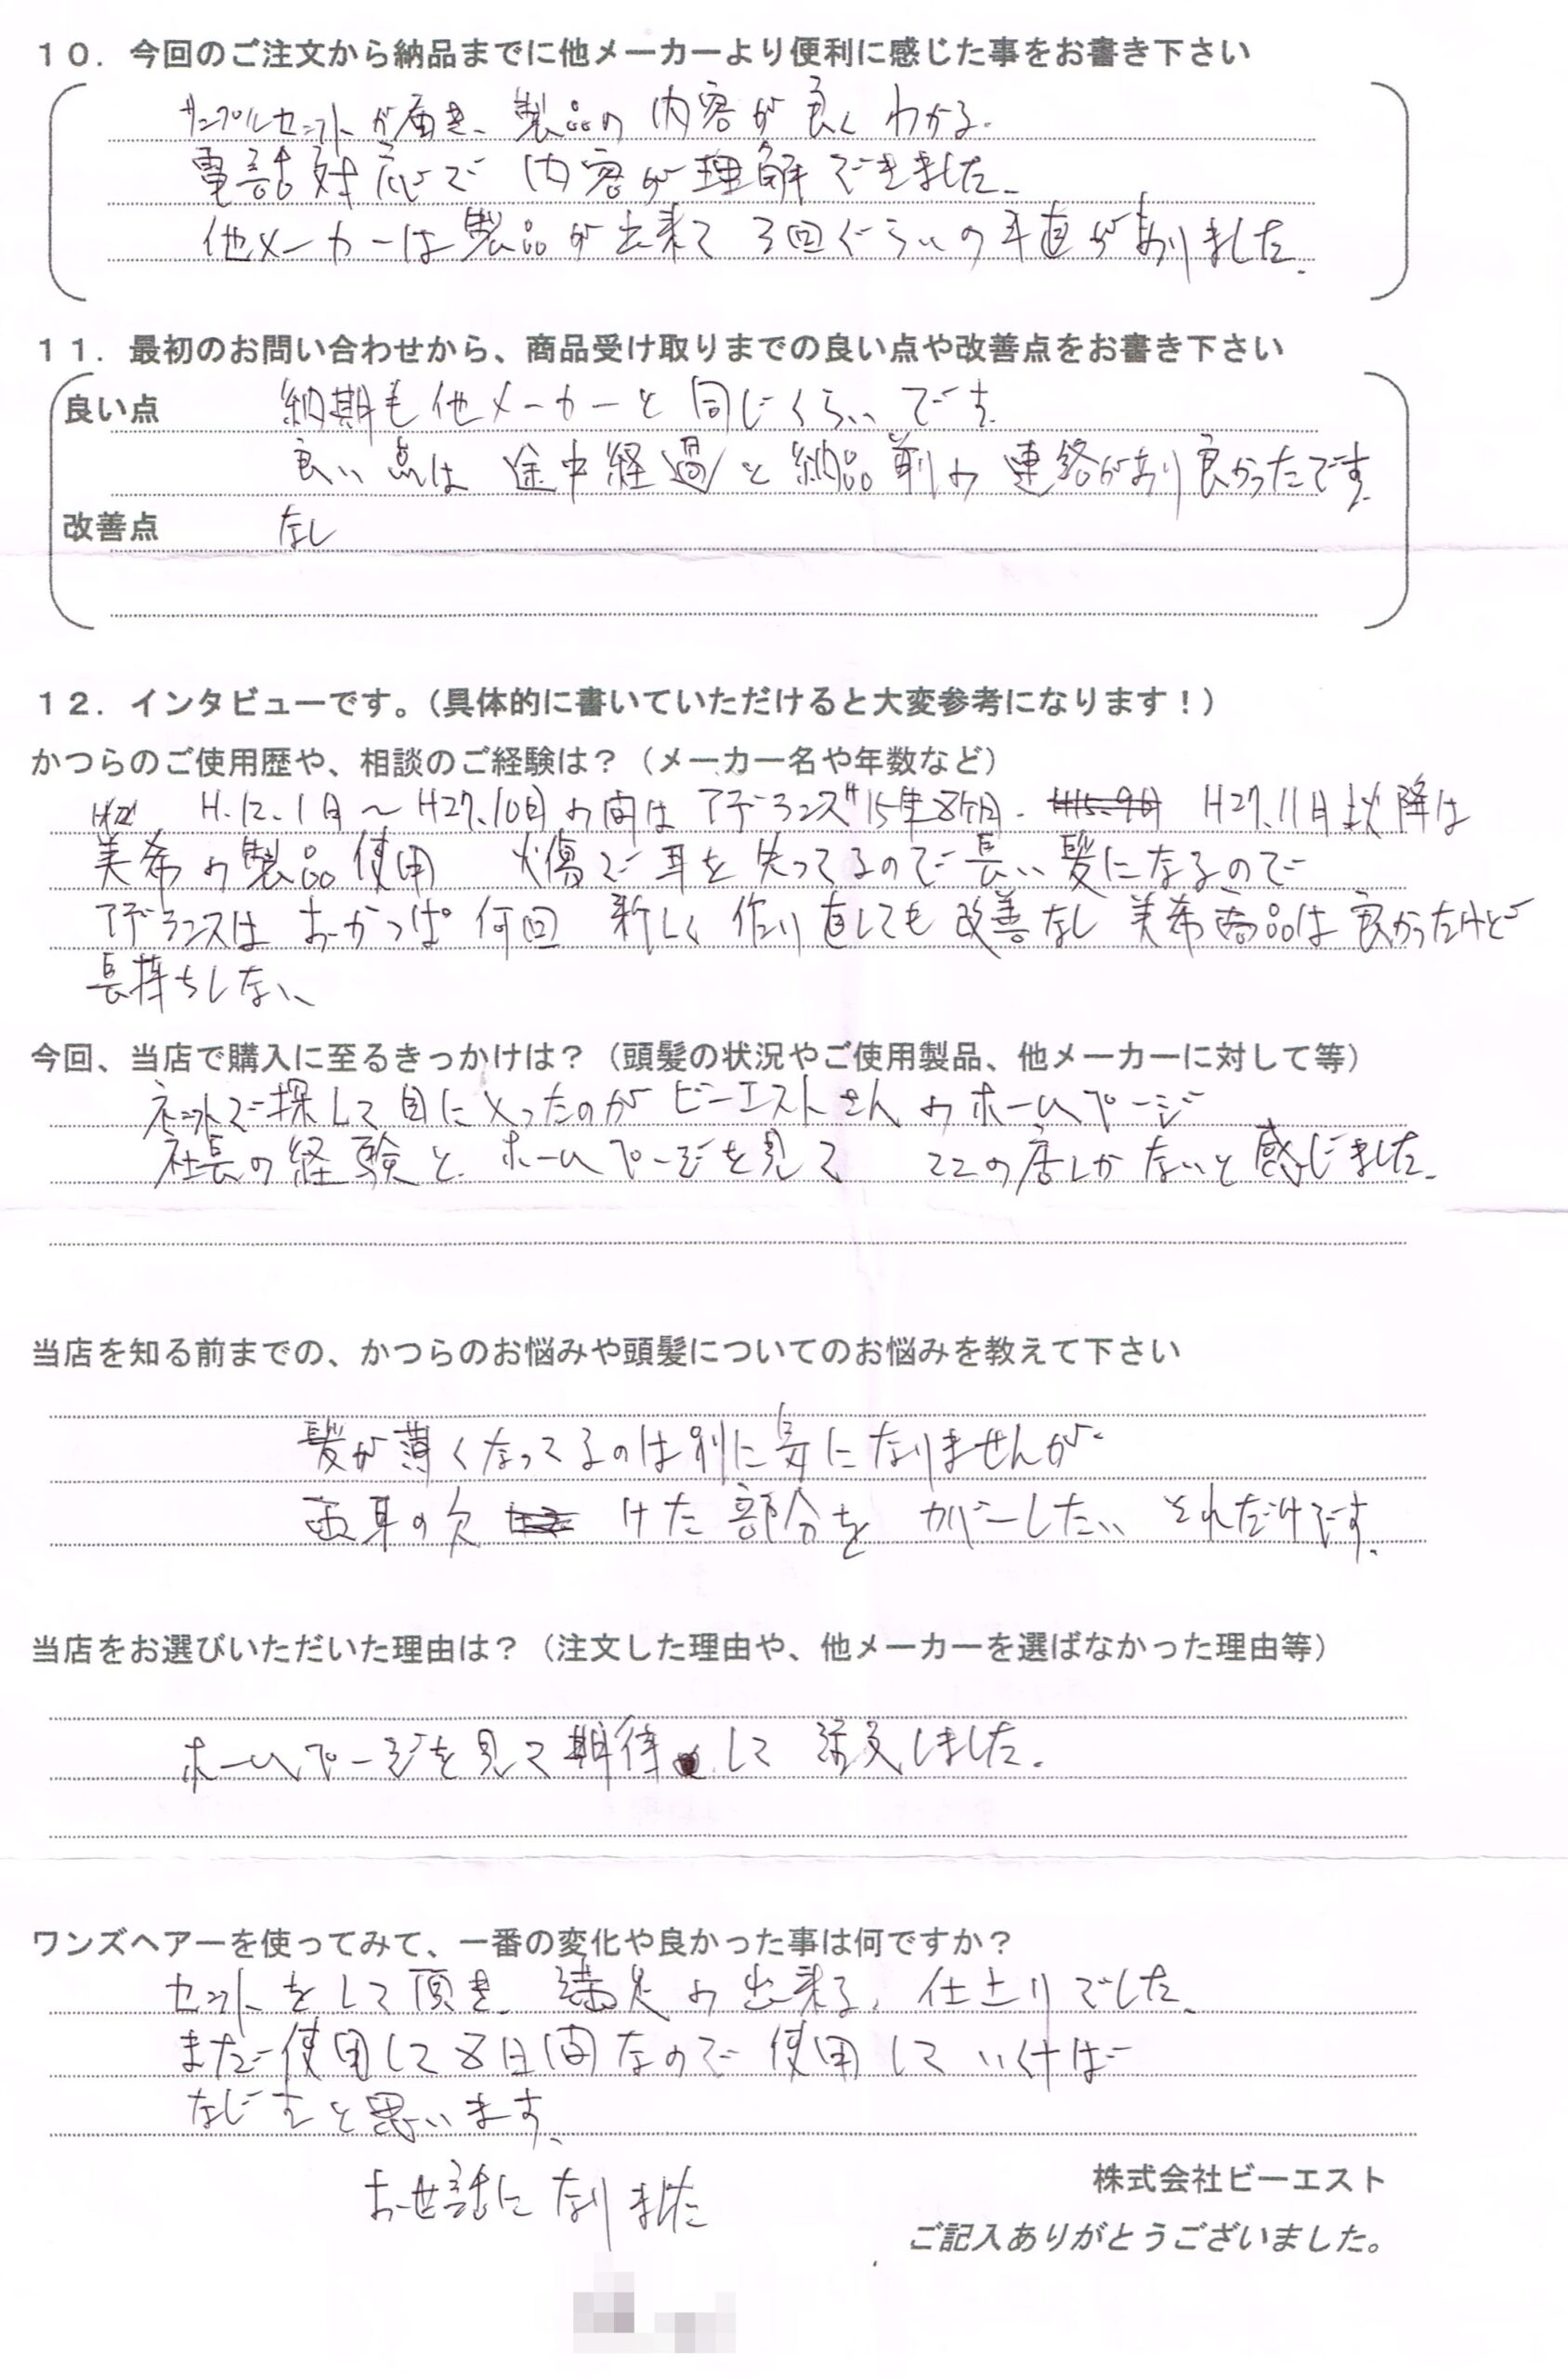 10．今回のご注文から納品までに他メーカーより便利に感じた事をお書き下さい
サンプルセットが届き、製品の内容が良くわかる.
電話対応で内容が理解できました.
他メーカーは製品が出来て3回ぐらいの手直がありました.
11．最初のお問い合わせから、商品受け取りまでの良い点や改善点をお書き下さい
良い点 納期も他メーカーと同じくらいです.
良い点は途中経過と納品前の連絡があり良かったです.
改善点 なし
12．インタビューです。（具体的に書いていただけると大変参考になります！）
かつらのご使用歴や、相談のご経験は？（メーカー名や年数など）
H.12.1日〜H27.10日の間はアデランス15年8ヶ月. H27.11日以降は
美希の製品使用 火傷で耳を失ってるので長い髪になるので
アデランスはおかっぱ何回新しく作り直しても改善なし美希商品は良かったけど
長持ちしない
今回、当店で購入に至るきっかけは？（頭髪の状況やご使用製品、他メーカーに対して等）
ネットで探して目に入ったのがビーエストさんのホームページ
社長の経験と、ホームページを見て ココの店しかないと感じました.
当店を知る前までの、かつらのお悩みや頭髪についてのお悩みを教えて下さい
髪が薄くなってるのは別に気になりませんが、
両耳の欠けた部分をカバーしたいそれだけです.
当店をお選びいただいた理由は？（注文した理由や、他メーカーを選ばなかった理由等）
ホームページを見て期待して注文しました.
ワンズヘアーを使ってみて、一番の変化や良かった事は何ですか？
セットをして頂き、満足の出来る、仕上りでした.
まだ使用して8日間なので使用していけば
なじむと思います.
お世話になりました
株式会社ビーエスト
ご記入ありがとうございました。